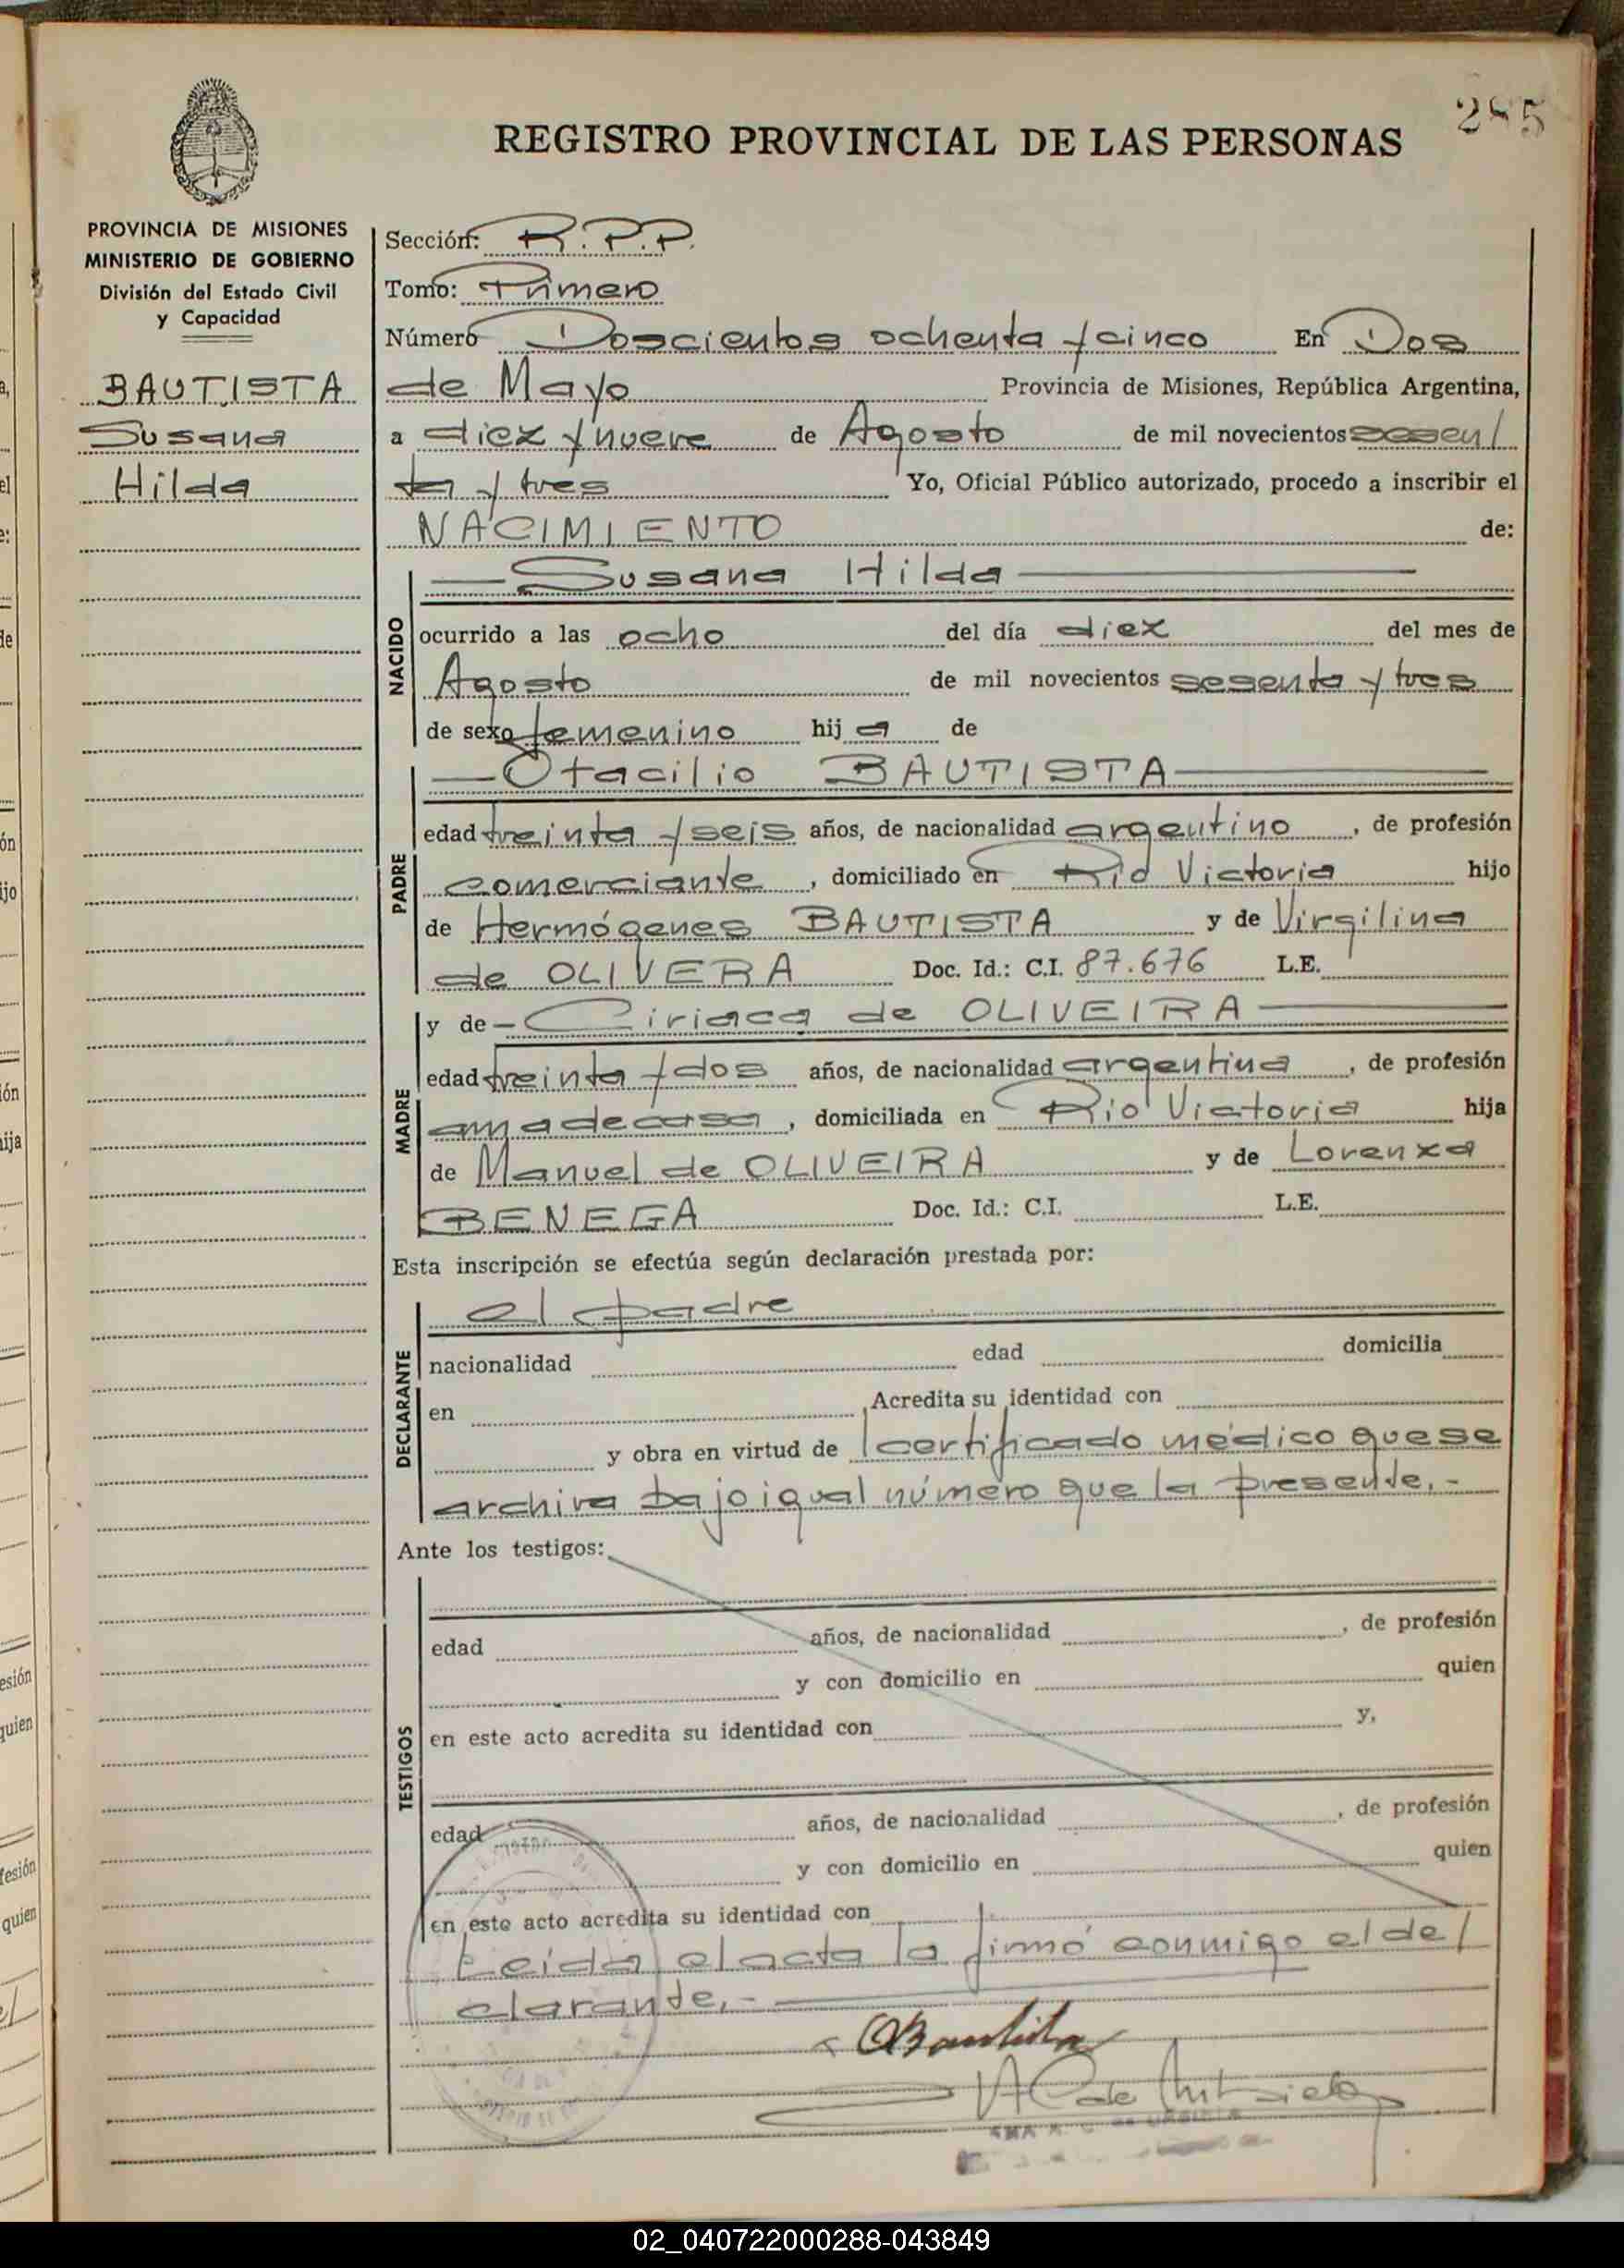 285
REGISTRO PROVINCIAL DE LAS PERSONAS
PROVINCIA DE MISIONES
MINISTERIO DE GOBIERNO
División del Estado Civil
y Capacidad
BAUTISTA
Susana
Hilda
Sección: R.P.P.
Tomo: Primero
Número Doscientos ochenta y cinco En Dos
de Mayo Provincia de Misiones, República Argentina,
a diez y nueve de Agosto de mil novecientos sesen/
ta y tres Yo, Oficial Público autorizado, procedo a inscribir el
NACIMIENTO de:
NACIDO
— Susana Hilda —
ocurrido a las ocho del día diez del mes de
Agosto de mil novecientos sesenta y tres
de sexo femenino hij a de
PADRE
— Otacilio BAUTISTA —
edad treinta y seis años, de nacionalidad argentino, de profesión
comerciante, domiciliado en Río Victoria hijo
de Hermógenes BAUTISTA y de Virgilina
de OLIVERA Doc. Id.: C.I. 87.676 L.E.
MADRE
y de — Ciriaca de OLIVEIRA —
edad treinta y dos años, de nacionalidad argentina, de profesión
ama de casa, domiciliada en Río Victoria hija
de Manuel de OLIVEIRA y de Lorenza
BENEGA Doc. Id.: C.I. L.E.
Esta inscripción se efectúa según declaración prestada por:
DECLARANTE
el padre
nacionalidad edad domicilia
en Acredita su identidad con
y obra en virtud de / certificado médico que se
archiva bajo igual número que la presente.-
Ante los testigos:
TESTIGOS
edad años, de nacionalidad , de profesión
y con domicilio en quien
en este acto acredita su identidad con y,
edad años, de nacionalidad , de profesión
y con domicilio en quien
en este acto acredita su identidad con
Leída el acta la firmó conmigo el de/
clarante.-
OBautista
02_040722000288-043849